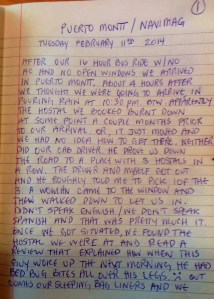 1
PUERTO MONTT / NAVIMAG
TUESDAY FEBRUARY 11TH 2014
AFTER OUR 16 HOUR BUS RIDE W/NO
AC AND NO OPEN WINDOWS WE ARRIVED
IN PUERTO MONTT. ABOUT 4 HOURS AFTER
WE THOUGHT WE WERE GOING TO ARRIVE, IN
POURING RAIN AT 10:30 PM. BTW, APPARENTLY
THE HOSTAL WE BOOKED BURNT DOWN
AT SOME POINT A COUPLE MONTHS PRIOR
TO OUR ARRIVAL OR IT JUST MOVED AND
WE HAD NO IDEA HOW TO GET THERE. NEITHER
DID OUR CAB DRIVER. HE DROVE US DOWN
THE ROAD TO A PLACE WITH 3 HOSTALS IN
A ROW. THE DRIVER AND MYSELF GOT OUT
AND HE ROUGHLY TOLD ME TO PICK 1 OF THE
3. A WOMAN CAME TO THE WINDOW AND
THEN WALKED DOWN TO LET US IN.
DIDN'T SPEAK ENGLISH, WE DON'T SPEAK
SPANISH AND THAT WAS PRETTY MUCH IT.
ONCE WE GOT SITUATED, WE FOUND THE
HOSTAL WE WERE AT AND READ A
REVIEW THAT EXPLAINED HOW WHEN THIS
GUY WOKE UP THE NEXT MORNING HE HAD
BED BUG BITES ALL OVER HIS LEGS. :( OUT
COMES OUR SLEEPING BAG LINERS AND WE